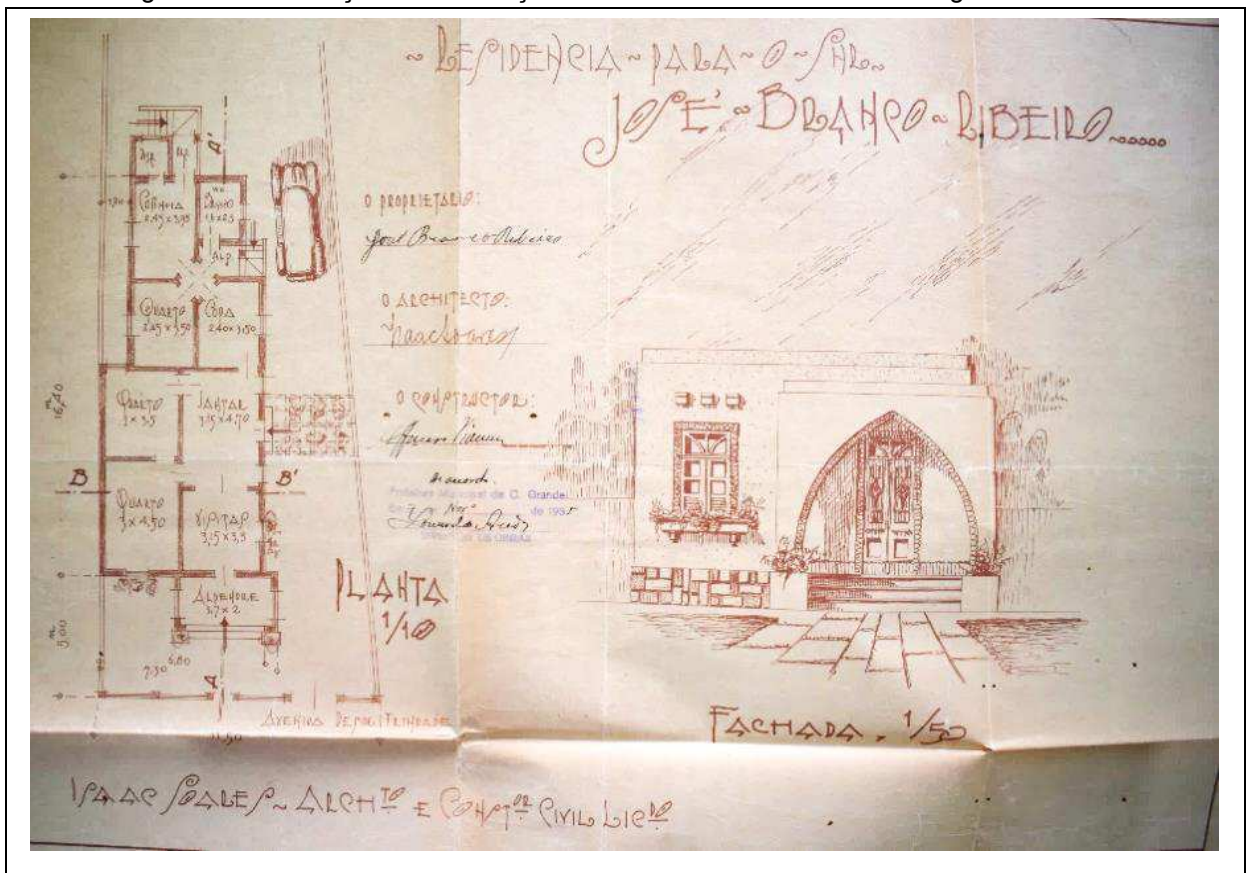 ~ RESIDENCIA ~ PARA ~ O ~ SNR.
JOSÉ ~ BRANCO ~ RIBEIRO
O PROPRIETARIO:
José Branco Ribeiro
O ARCHITECTO:
Isaac Soares
O CONSTRUCTOR:
Prefeitura Municipal de C. Grande
de 193
DSP.
COSINHA
2.45 x 3.95
WC
BANHO
ALP.
QUARTO
2.45 x 3.50
COPA
2.40 x 3.50
QUARTO
3 x 3.5
JANTAR
3.15 x 4.70
B
B'
QUARTO
3 x 4.50
VISITAS
3.15 x 3.5
ALPENDRE
3.7 x 2
A'
A
m
16,40
m
5.00
7.50
6.80
11.50
PLANTA
1/10
FACHADA. 1/50
ISAAC SOARES ~ ARCHTO E CONSTOR CIVIL LICDO